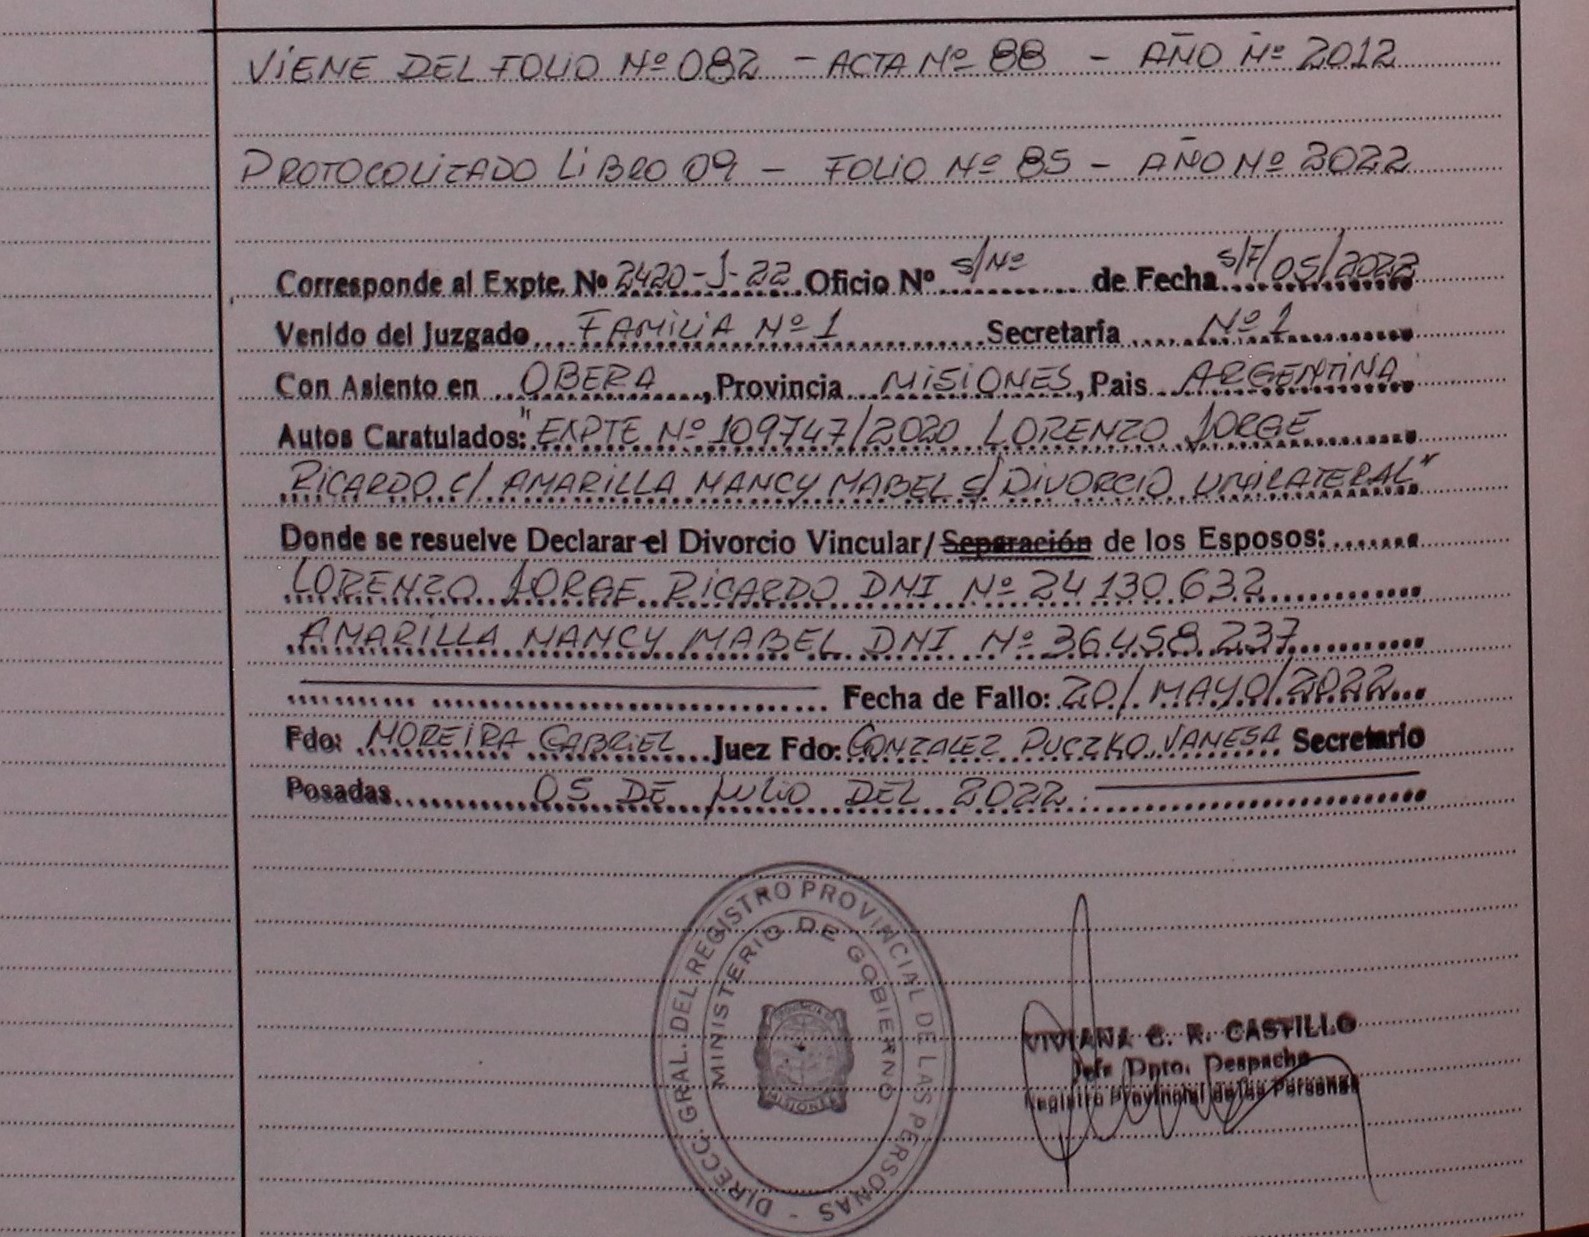 VIENE DEL FOLIO Nº 082 - ACTA Nº 88 - AÑO Nº 2012
PROTOCOLIZADO LIBRO 09 - FOLIO Nº 85 - AÑO Nº 2022
Corresponde al Expte. Nº 2420-J-22 Oficio Nº S/Nº de Fecha S/F/05/2022
Venido del Juzgado FAMILIA Nº 1 Secretaría Nº 1
Con Asiento en OBERA, Provincia MISIONES, Pais ARGENTINA
Autos Caratulados: "EXPTE Nº 109747/2020 LORENZO JORGE
RICARDO C/ AMARILLA NANCY MABEL S/ DIVORCIO UNILATERAL"
Donde se resuelve Declarar el Divorcio Vincular/Separación de los Esposos:
LORENZO JORGE RICARDO DNI Nº 24130.632
AMARILLA NANCY MABEL DNI Nº 36.458.237
Fecha de Fallo: 20/MAYO/2022
Fdo: MOREIRA GABRIEL Juez Fdo: GONZALEZ PUCZKO VANESA Secretario
Posadas 05 DE JULIO DEL 2022
DIRECC. GRAL. DEL REGISTRO PROVINCIAL DE LAS PERSONAS -
MINISTERIO DE GOBIERNO
MISIONES
VIVIANA C. R. CASTILLO
Jefe Dpto. Despacho
Registro Provincial de las Personas